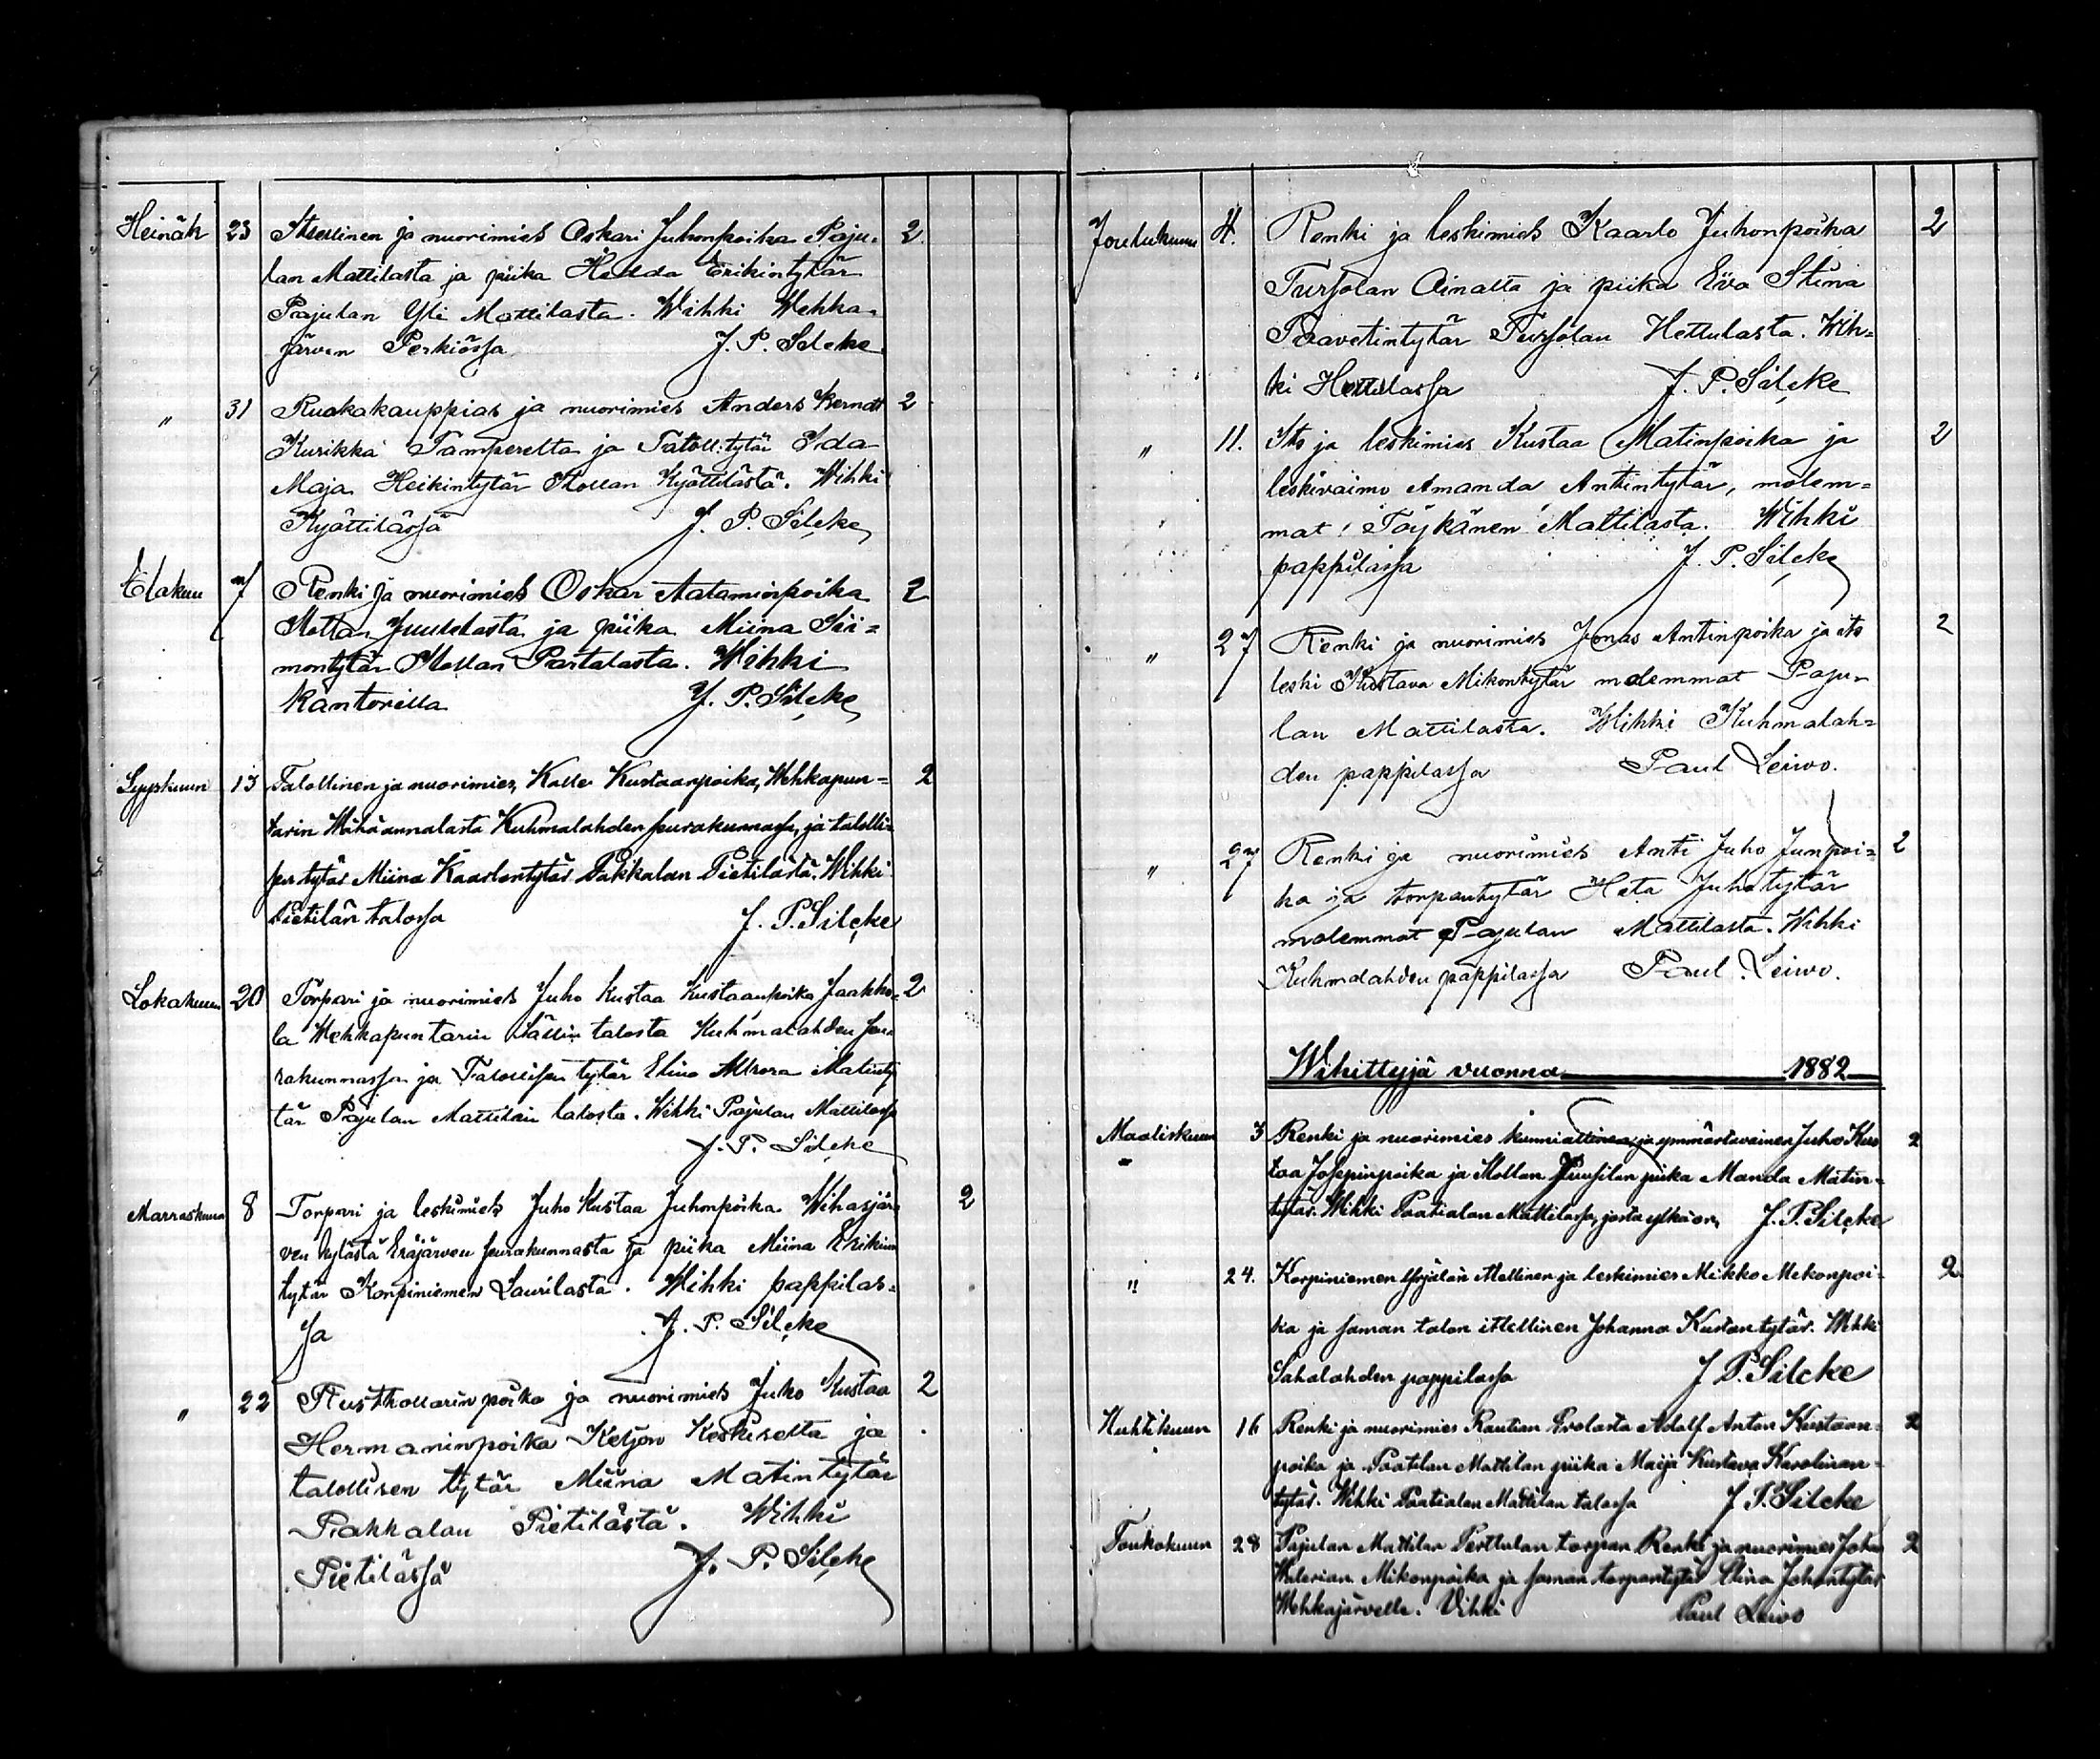 Heinäk 23 Itsellinen ja nuorimies Oskari Juhonpoika Paju- 2
lan Mattilasta ja piika Hedda Erikintytär
Pajulan Yli Mattilasta. Wihki Wehka-
järven Perkiössä J. P. Silcke
" 31 Ruokakauppias ja nuorimies Anders Berndt 2
Kurikka Tamperelta ja Taloll:tytär Ida
Maja Heikintytär Mollan Kyöttilästä. Wihki
Kyöttilässä J. P. Silcke
Elokuu 7 Renki ja nuorimies Oskar Aataminpoika 2
Mollan Juulilasta ja piika Miina Sii=
montytär Mollan Partalasta. Wihki
kantorilla J. P. Silcke
Syyskuun 13 Talollinen ja nuorimies, Kalle Kustaanpoika, Wehkapun= 2
tarin Wähäannalasta Kuhmalahden seurakunnassa, ja talolli-
sen tytär Miina Kaarlontytär Pakkalan Pietilästä. Wihki
Pietilän talossa J. P. Silcke
Lokakuun 20 Torpari ja nuorimies Juho Kustaa Kustaanpoika Jaakko- 2
la Wehkapuntarin Sällin talosta Kuhmalahden seu-
rakunnassa ja Talollisen tytär Elina Aurora Matinty
tär Pajulan Mattilan talosta. Wihki Pajulan Mattilassa
J. P. Silcke
Marraskuun 8 Torpari ja leskimies Juho Kustaa Juhonpoika Wihasjär- 2
ven kylästä Eräjärven seurakunnasta ja piika Miina Erikin
tytär Korpiniemen Laurilasta. Wihki pappilas-
sa J. P. Silcke
" 22 Rusthollarin poika ja nuorimies Juho Kustaa 2
Hermaninpoika Ketjon Keskiseltä ja
talollisen tytär Miina Matintytär
Pakkalan Pietilästä. Wihki
Pietilässä J. P. Silcke
Joulukuun 4. Renki ja leskimies Kaarlo Juhonpoika 2
Tursolan Ainalta ja piika Eva Stina
Taavetintytär Tursolan Hettulasta. Wih=
ki Hettulassa J. P. Silcke
" 11. Its ja leskimies Kustaa Matinpoika ja 2
leskivaimo Amanda Antintytär, molem=
mat Töykänen Mattilasta. Wihki
pappilassa J. P. Silcke
" 27 Renki ja nuorimies Jonas Antinpoika ja its 2
leski Kustava Mikontytär molemmat Paju-
lan Mattilasta. Wihki Kuhmalah=
den pappilassa Paul Leiwo.
" 27 Renki ja nuorimies Anti Juho Junpoi= 2
ka ja torpantytär Heta Juhotytär
molemmat Pajulan Mattilasta. Wihki
Kuhmalahden pappilassa Paul Leiwo.
Wihittyjä vuonna 1882
Maaliskuun 3 Renki ja nuorimies kunniallinen ja ymmärtävainen Juho Kus 2
taa Josepinpoika ja Mollan Juusilan piika Manda Matin-
tytär. Wihki Paatialan Mattilassa, josta ylkä on, J. P. Silcke
" 24. Korpiniemen Yrjälän itsellinen ja leskimies Mikko Mikonpoi- 2
ka ja saman talon itsellinen Johanna Kustantytär. Wihki
Sahalahden pappilassa J P. Silcke
Huhtikuun 16 Renki ja nuorimies Rautian Prolasta Adolf Anton Kustaan- 2
poika ja Paatilan Mattilan piika Maija Kustava Karolinan-
tytär. Wihki Paatialan Mattilan talossa J P. Silcke
Toukokuun 28 Pajulan Mattilan Perttulan torpan Renki ja nuorimies Johan 2
Walerian Mikonpoika ja saman torpantytär Stina Johantytär
Wehkajärvellä. Vihki Paul Leiwo